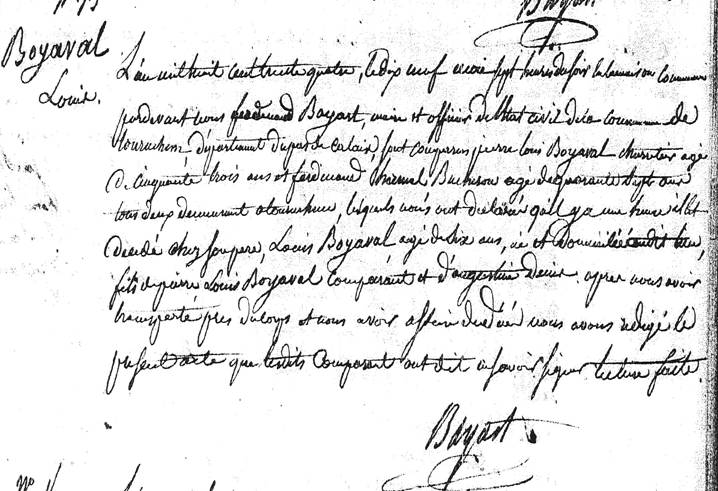 Bayart
Boyaval
Louis.
L'an mil huit cent trente quatre, le dix neuf mai sept heures du soir en la maison commune
pardevant nous ferdinand Bayart, maire et officier de l'Etat civil de la commune de
tournehem, département du pas de calais, sont comparus pierre louis Boyaval charretier agé
de cinquante trois ans et ferdinand Bucheron agé de quarante sept ans
tous deux demeurant a tournehem, lesquels nous ont déclaré qu'il y a une heure il est
décédé chez son pere, Louis Boyaval agé de dix ans, né et domicilié audit lieu,
fils de pierre Louis Boyaval Comparant et d'augustine apres nous avoir
transporté pres du corps et nous avoir assuré du décès nous avons rédigé le
présent acte que lesdits Comparant ont dit ne savoir signer lecture faite.
Bayart